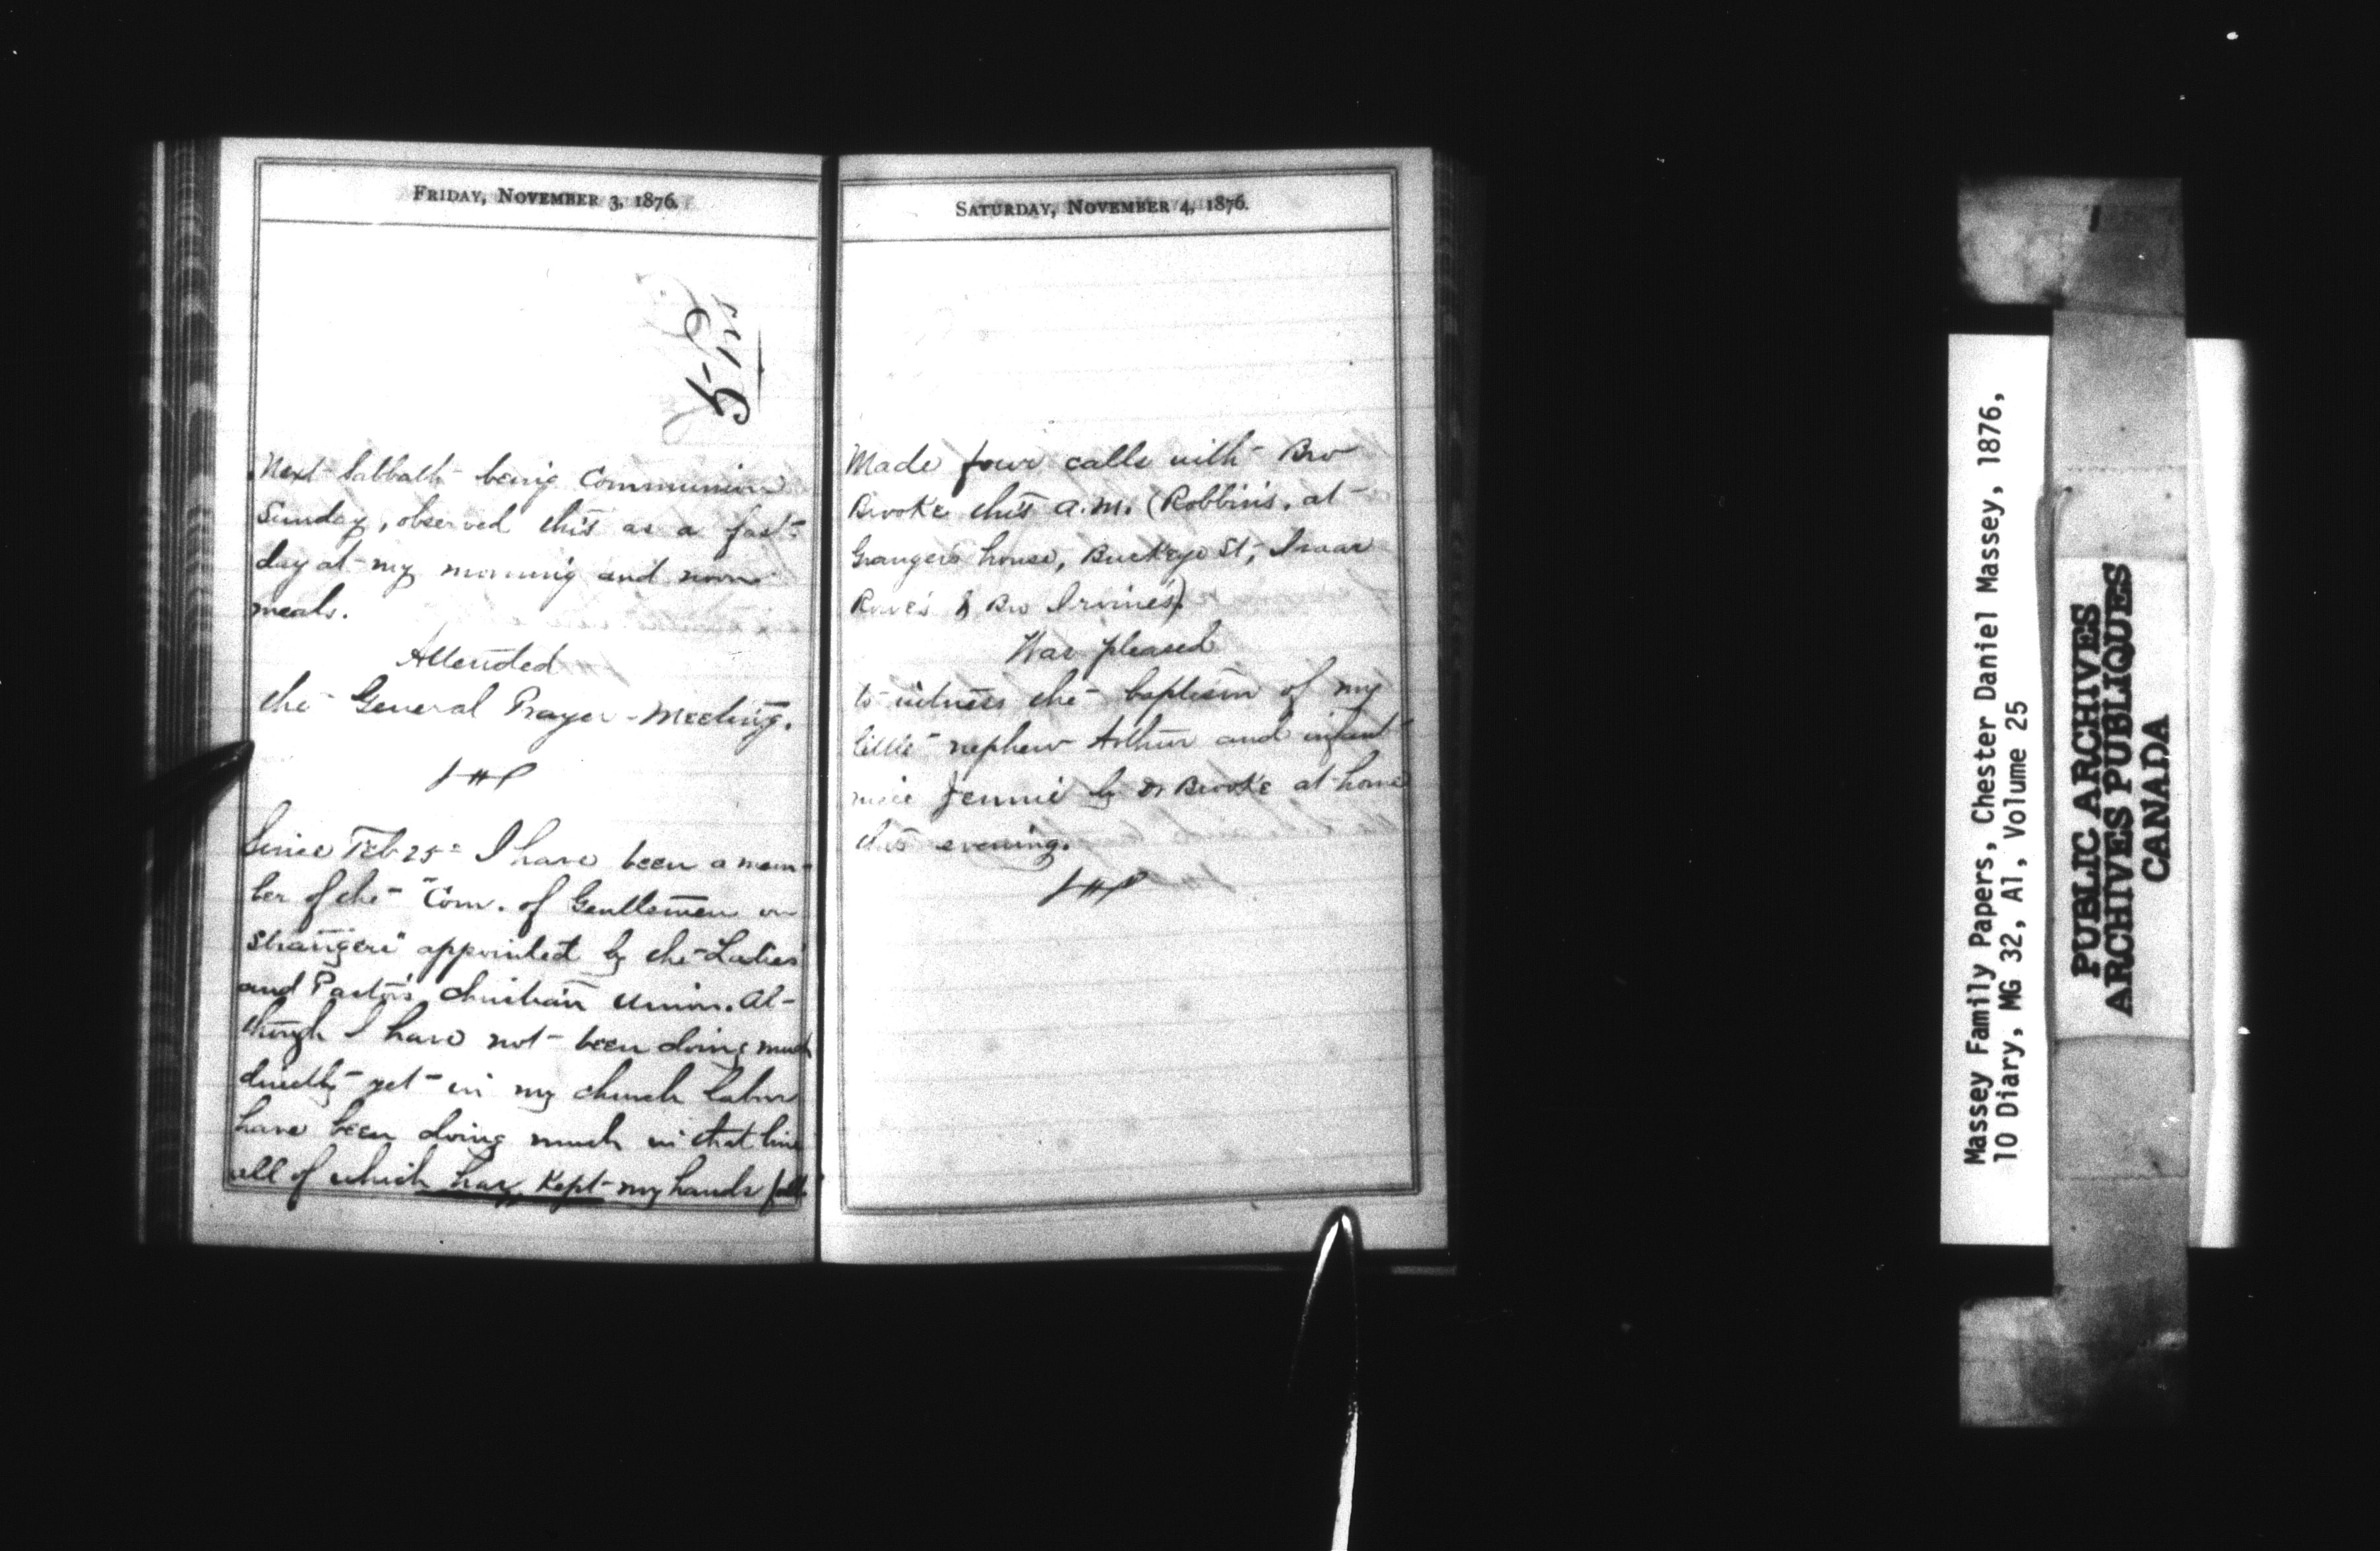 FRIDAY, NOVEMBER 3, 1876.
Next Sabbath being Communion
Sunday, observed this as a fast-
day at my morning and noon
meals.
Attended
the General Prayer-Meeting.
Since Feb 25 I have been a mem-
ber of the "Com. of Gentlemen on
Strangers" appointed by the Ladies'
and Pastor's Christian Union. Al-
though I have not been doing much
directly yet in my church labor
have been doing much in that line
all of which has kept my hands full
SATURDAY, NOVEMBER 4, 1876.
Made four calls with Bro
Brooke this a.m. (Robbins, at
Grangers house, Buckeye St, Isaac
Rowe's & Bro Irvine's).
Was pleased
to witness the baptism of my
little nephew Arthur and infant
niece Jennie by Dr Brooke at home
this evening.
Massey Family Papers, Chester Daniel Massey, 1876,
10 Diary, MG 32, A1, Volume 25
PUBLIC ARCHIVES
ARCHIVES PUBLIQUES
CANADA